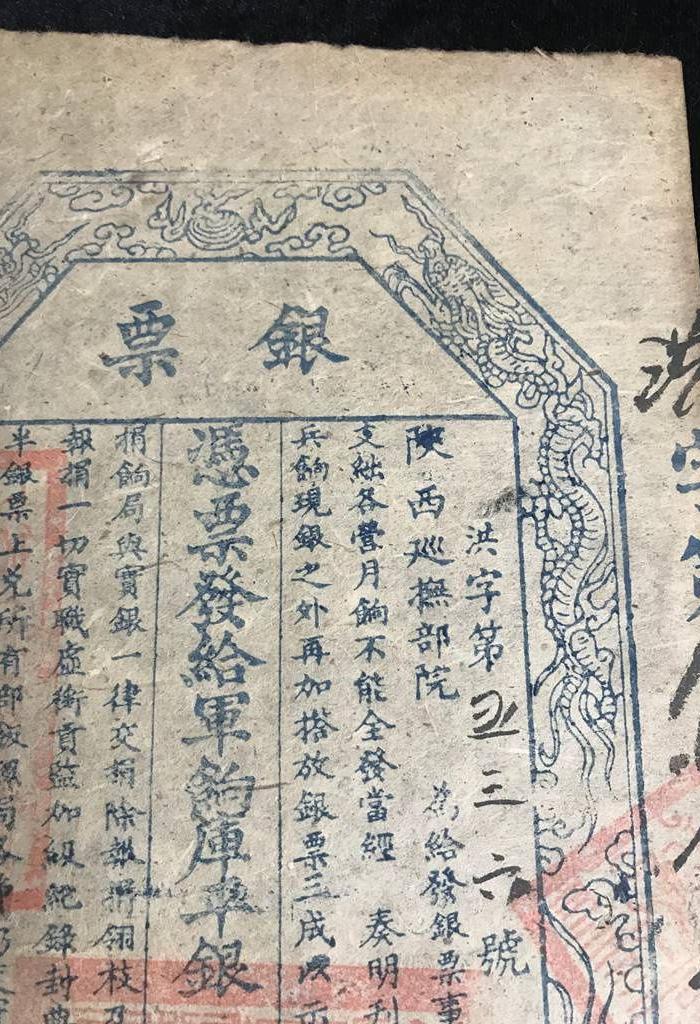 銀票
洪字第五三六號
陝西巡撫部院 為給發銀票事
支絀各營月餉不能全發當經 奏明
兵餉現銀之外再加搭放銀票三成
憑票發給軍餉庫平銀
捐餉局與實銀一律交捐除報捐翎枝及
報捐一切實職虛銜貢監加級紀錄封典
半銀票上兌所有部飯照局各